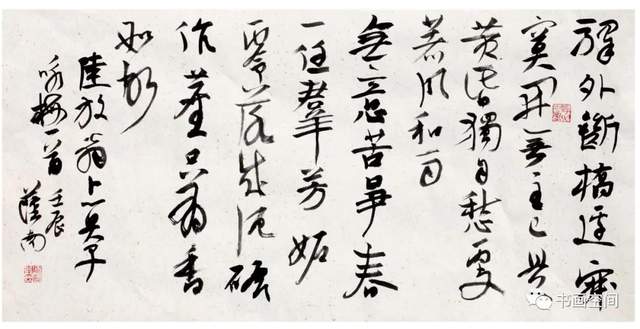 驛外斷橋邊寂
寞開無主已是
黃昏獨自愁更
著風和雨
無意苦爭春
一任羣芳妬
零落成泥碾
作塵只有香
如故
陸放翁卜算子
詠梅一首 壬辰
书画空间